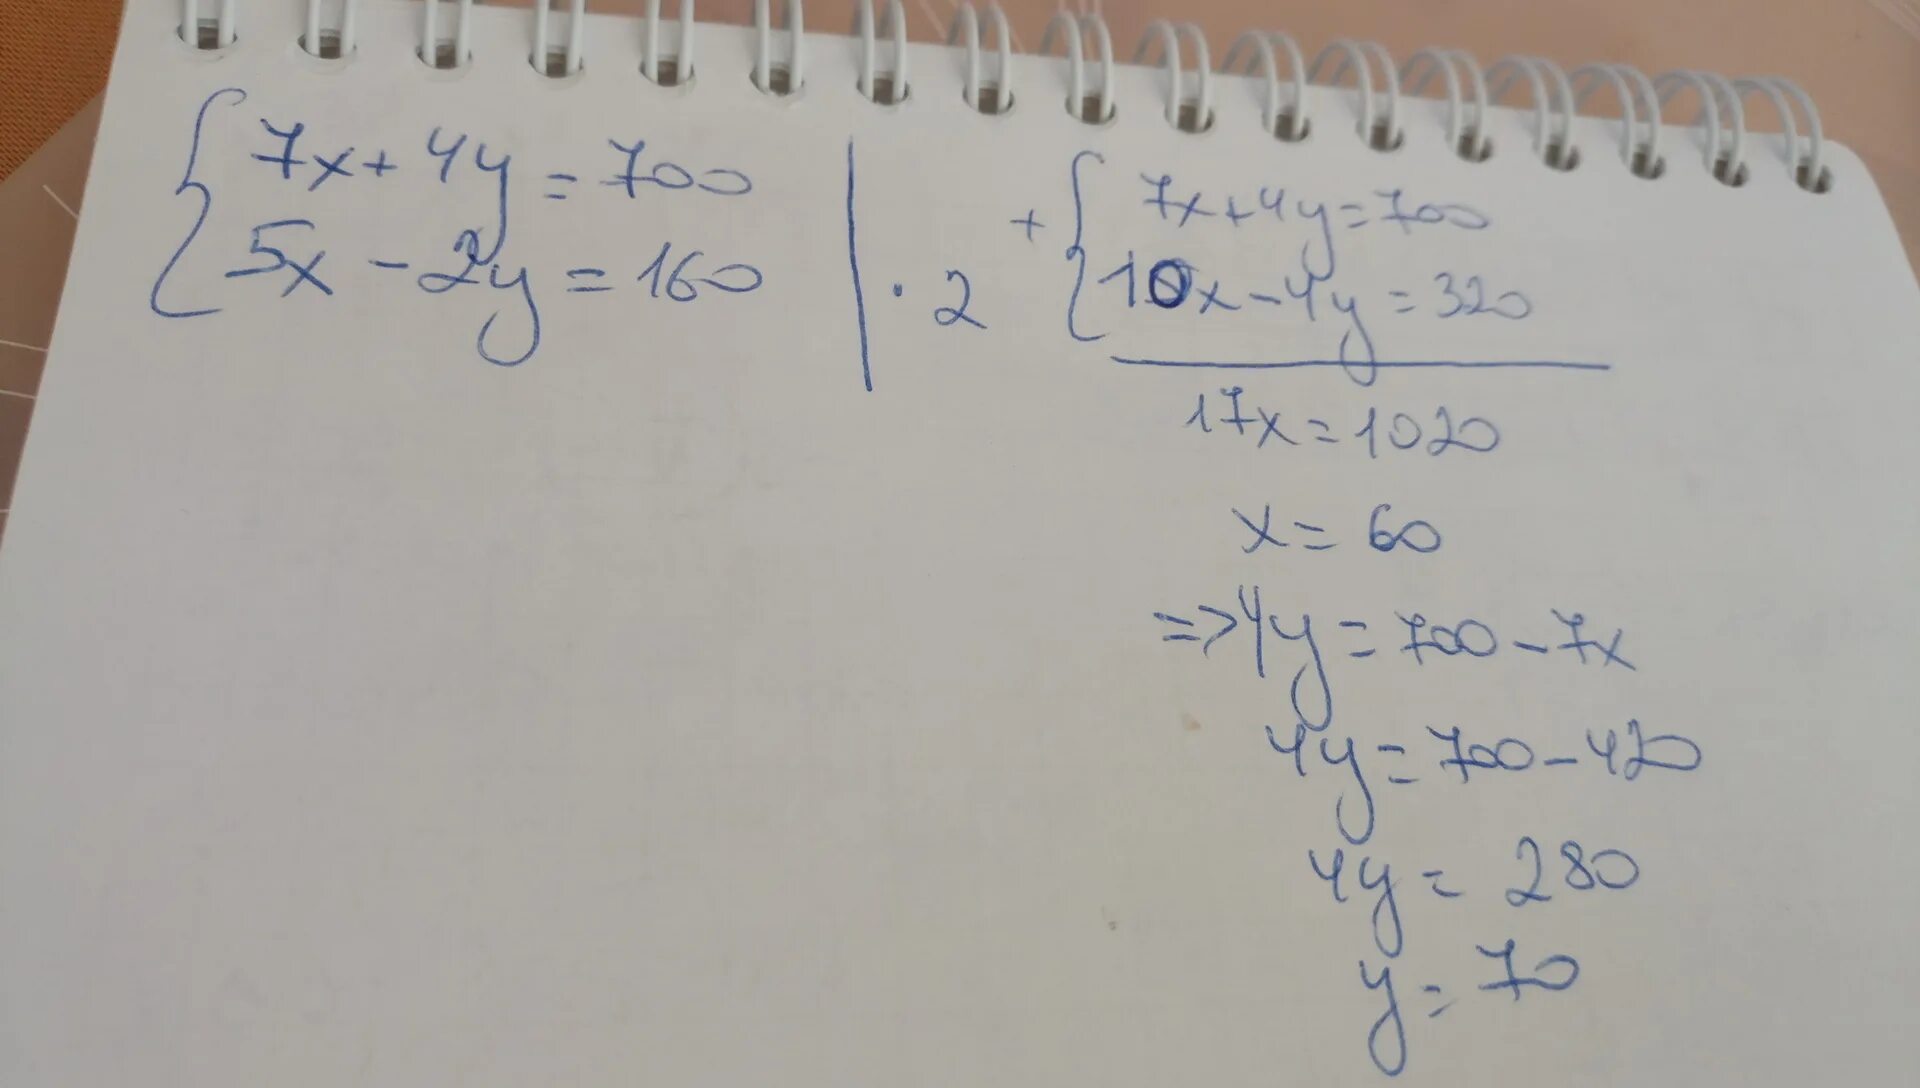 7x + 4y = 700
5x - 2y = 160 | · 2
+ { 7x + 4y = 700
10x - 4y = 320
17x = 1020
x = 60
=> 4y = 700 - 7x
4y = 700 - 420
4y = 280
y = 70